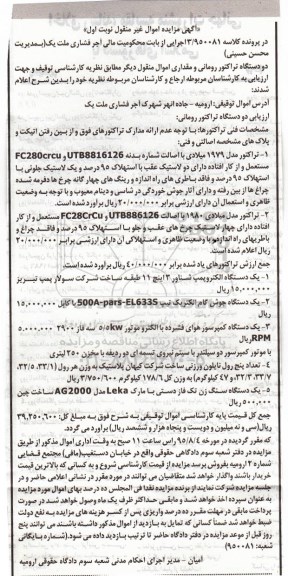 «آگهی مزایده اموال غیر منقول نوبت اول»
در پرونده کلاسه ۳/۹۵۰۰۸۱اجرایی از بابت محکومیت مالی آجر فشاری ملت یک(بـمدیریت
محسن حسینی)
دو دستگاه تراکتور رومانی و مقداری اموال منقول دیگر مطابق نظریه کارشناسی توقیف و جهت
ارزیابی به کارشناسان مربوطه ارجاع و کارشناسان مربوطه نظریه خود را بدین شرح اعلام
شدند:
آدرس اموال توقیفی: ارومیه - جاده انهر شهرک آجر فشاری ملت یک
ارزیابی دو دستگاه تراکتور رومانی:
مشخصات فنی تراکتورها: با توجه عدم ارائه مدارک تراکتورهای فوق و از بین رفتن اتیکت و
پلاک های مشخصه اصالتی و فنی:
۱- تراکتور مدل ۱۹۷۹ میلادی با اصالت شماره بدنه UTB8816126 و FC280crcu
مستعمل و از کار افتاده دارای دو لاستیک عقب با استهلاک ۹۵ درصد و یک لاستیک جلوئی با
استهلاک ۹۵ درصد و فاقد باطری های راه اندازه و رینگ های چهار گانه چرخ ها دفرمه شده
چراغ ها از بین رفته و دارای آثار جوش خوردگی در شاسی و دینام معیوب و با توجه به وضعیت
ظاهری و استعمال آن دارای ارزشی برابر ۲۰/۰۰۰/۰۰۰ ریال برآورد شده است.
۲- تراکتور مدل میلادی ۱۹۸۰ با اصالت UTB886126 و FC28CrCu مستعمل و از کار
افتاده دارای چهار لاستیک چرخ های عقب و جلو بـا استهلاک ۹۵ درصد و فاقـد چراغ و
باطریهای راه اندازهم با وضعیت ظاهری و استهلاکی آن دارای ارزشی برابر ۲۰/۰۰۰/۰۰۰
ریال اعلام شده است.
جمع ارزش تراکتورهای یاد شده برابر ۴۰/۰۰۰/۰۰۰ ریال برآورد شده است.
۱- یک دستگاه الکتروپمپ شناور ۳ اینچ ۱۱ طبقه ساخت شرکت سولار پمپ تبریز
۱۵,۰۰۰,۰۰۰ ریال
۲- یک دستگاه جوش گام الکتریک تیپ 500A-pars-EL633S با کابل ۱۵,۰۰۰,۰۰۰
ریال
۳- یک دستگاه کمپرسور هوای فشرده با الکترو موتور ۵/۵kw سه فاز ۲۹۰۰ ۵.۰۰۰.۰۰۰
RPMریال
با موتور کمپرسور دو سیلندر با سیتم نیروی تسمه ای دو ردیفه با مخزن ۲۵۰ لیتری
۴- تعداد پنج رول نایلون وزرنی ساخت شرکت کیهان پلاستیک به وزن هر رول (۳۲/۵،۳۳/۱،
۳۲/۳،۳۳/۷و ۴۷ کیلوگرم) به وزن کل ۱۷۸/۶ کیلوگرم ۳/۷۵۰/۶۰۰ ریال
۵- یک دستگاه سنگ زن تک فاز دستی با مارک Leka مدل AG2000 ساخت چین
۵۰۰,۰۰۰ ریال
جمع کل قیمت پایه کارشناسی اموال توقیفی به شرح فوق به مبلغ کل: ۳۹,۲۵۰,۶۰۰
ریال(سی و نه میلیون و دویست و پنجاه هزار و ششصد ریال) برآورد می گردد.
که مقرر گردیده در مورخه ۹۵/۸/۴ راس ساعت ۱۱ صبح به وقت اداری اموال مذکور از طریق
مزایده در دفتر شعبه سوم دادگاهی حقوقی واقع در خیابان دستغیب(مافی) مجتمع قضایی
شماره ۲ ارومیه بفروش برسد مزایده از قیمت کارشناسی شروع و به کسانی که بالاترین قیمت
خریدار باشند واگذار خواهد شد متقاضیان می توانند در مورد مقرر در نشانی اعلامی حاضر و در
جلسه مزایده شرکت نمایند از برنده مزایده نقدا فی المجلس ده درصد بهای اموال مورد مزایده
به عنوان سپرده اخذ خواهد شد و مابقی حداکثر ظرف یک ماه وصول خواهد شد در صورت عدم
پرداخت مابقی در مهلت مقرر ده درصد واریزی پس از کسر هزینه های مزایده به نفع دولت
ضبط خواهد شد ضمنا کسانی که تمایل به بازدید از اموال مذکور داشته باشند می توانند پنج
روز قبل از موعد مزایده در دفتر دادگاه حاضر تا ترتیب بازدید داده می شود.(شماره بایگانی
شعبه: ۹۵۰۰۸۱)
امیان - مدیر اجرای احکام مدنی شعبه سوم دادگاه حقوقی ارومیه